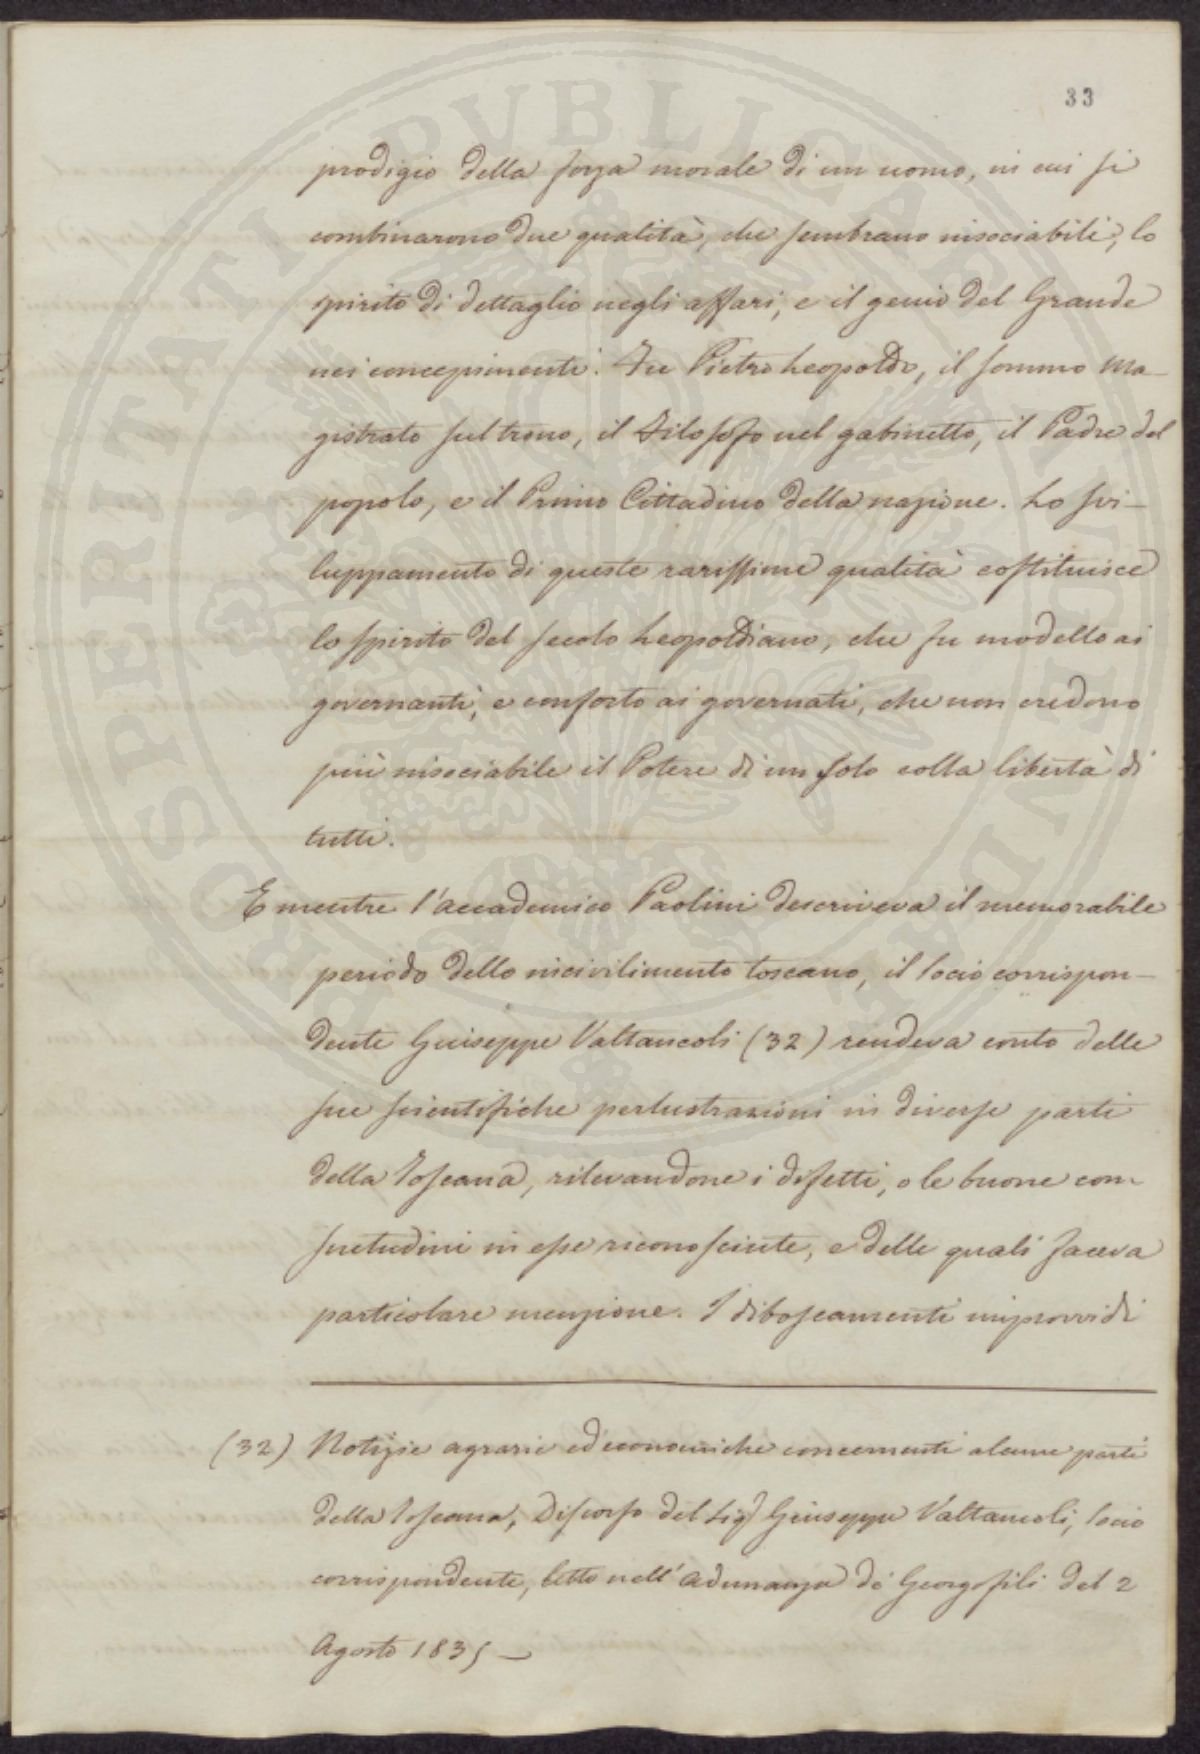 33
prodigio della forza morale di un uomo, in cui si
combinarono due qualità, che sembrano insociabili, lo
spirito di dettaglio negli affari, e il genio del Grande
nei concepimenti. Fu Pietro Leopoldo, il sommo Ma-
gistrato sul trono, il Filosofo nel gabinetto, il Padre del
popolo, e il Primo Cittadino della nazione. Lo svi-
luppamento di queste rarissime qualità costituisce
lo spirito del secolo Leopoldiano, che fu modello ai
governanti, e conforto ai governati, che non credono
più insociabile il Potere di un solo colla libertà di
tutti.
E mentre l'accademico Paolini descriveva il memorabile
periodo dello incivilimento toscano, il socio corrispon-
dente Giuseppe Valtancoli (32) rendeva conto delle
sue scientifiche perlustrazioni in diverse parti
della Toscana, rilevandone i difetti, o le buone con-
suetudini in esse riconosciute, e delle quali faceva
particolare menzione. I diboscamenti improvvidi
(32) Notizie agrarie ed economiche concernenti alcune parti
della Toscana, Discorso del Sig.r Giuseppe Valtancoli, socio
corrispondente, letto nell'adunanza de' Georgofili del 2
Agosto 1835 —
PROSPERITATI PUBLICAE AUGENDAE